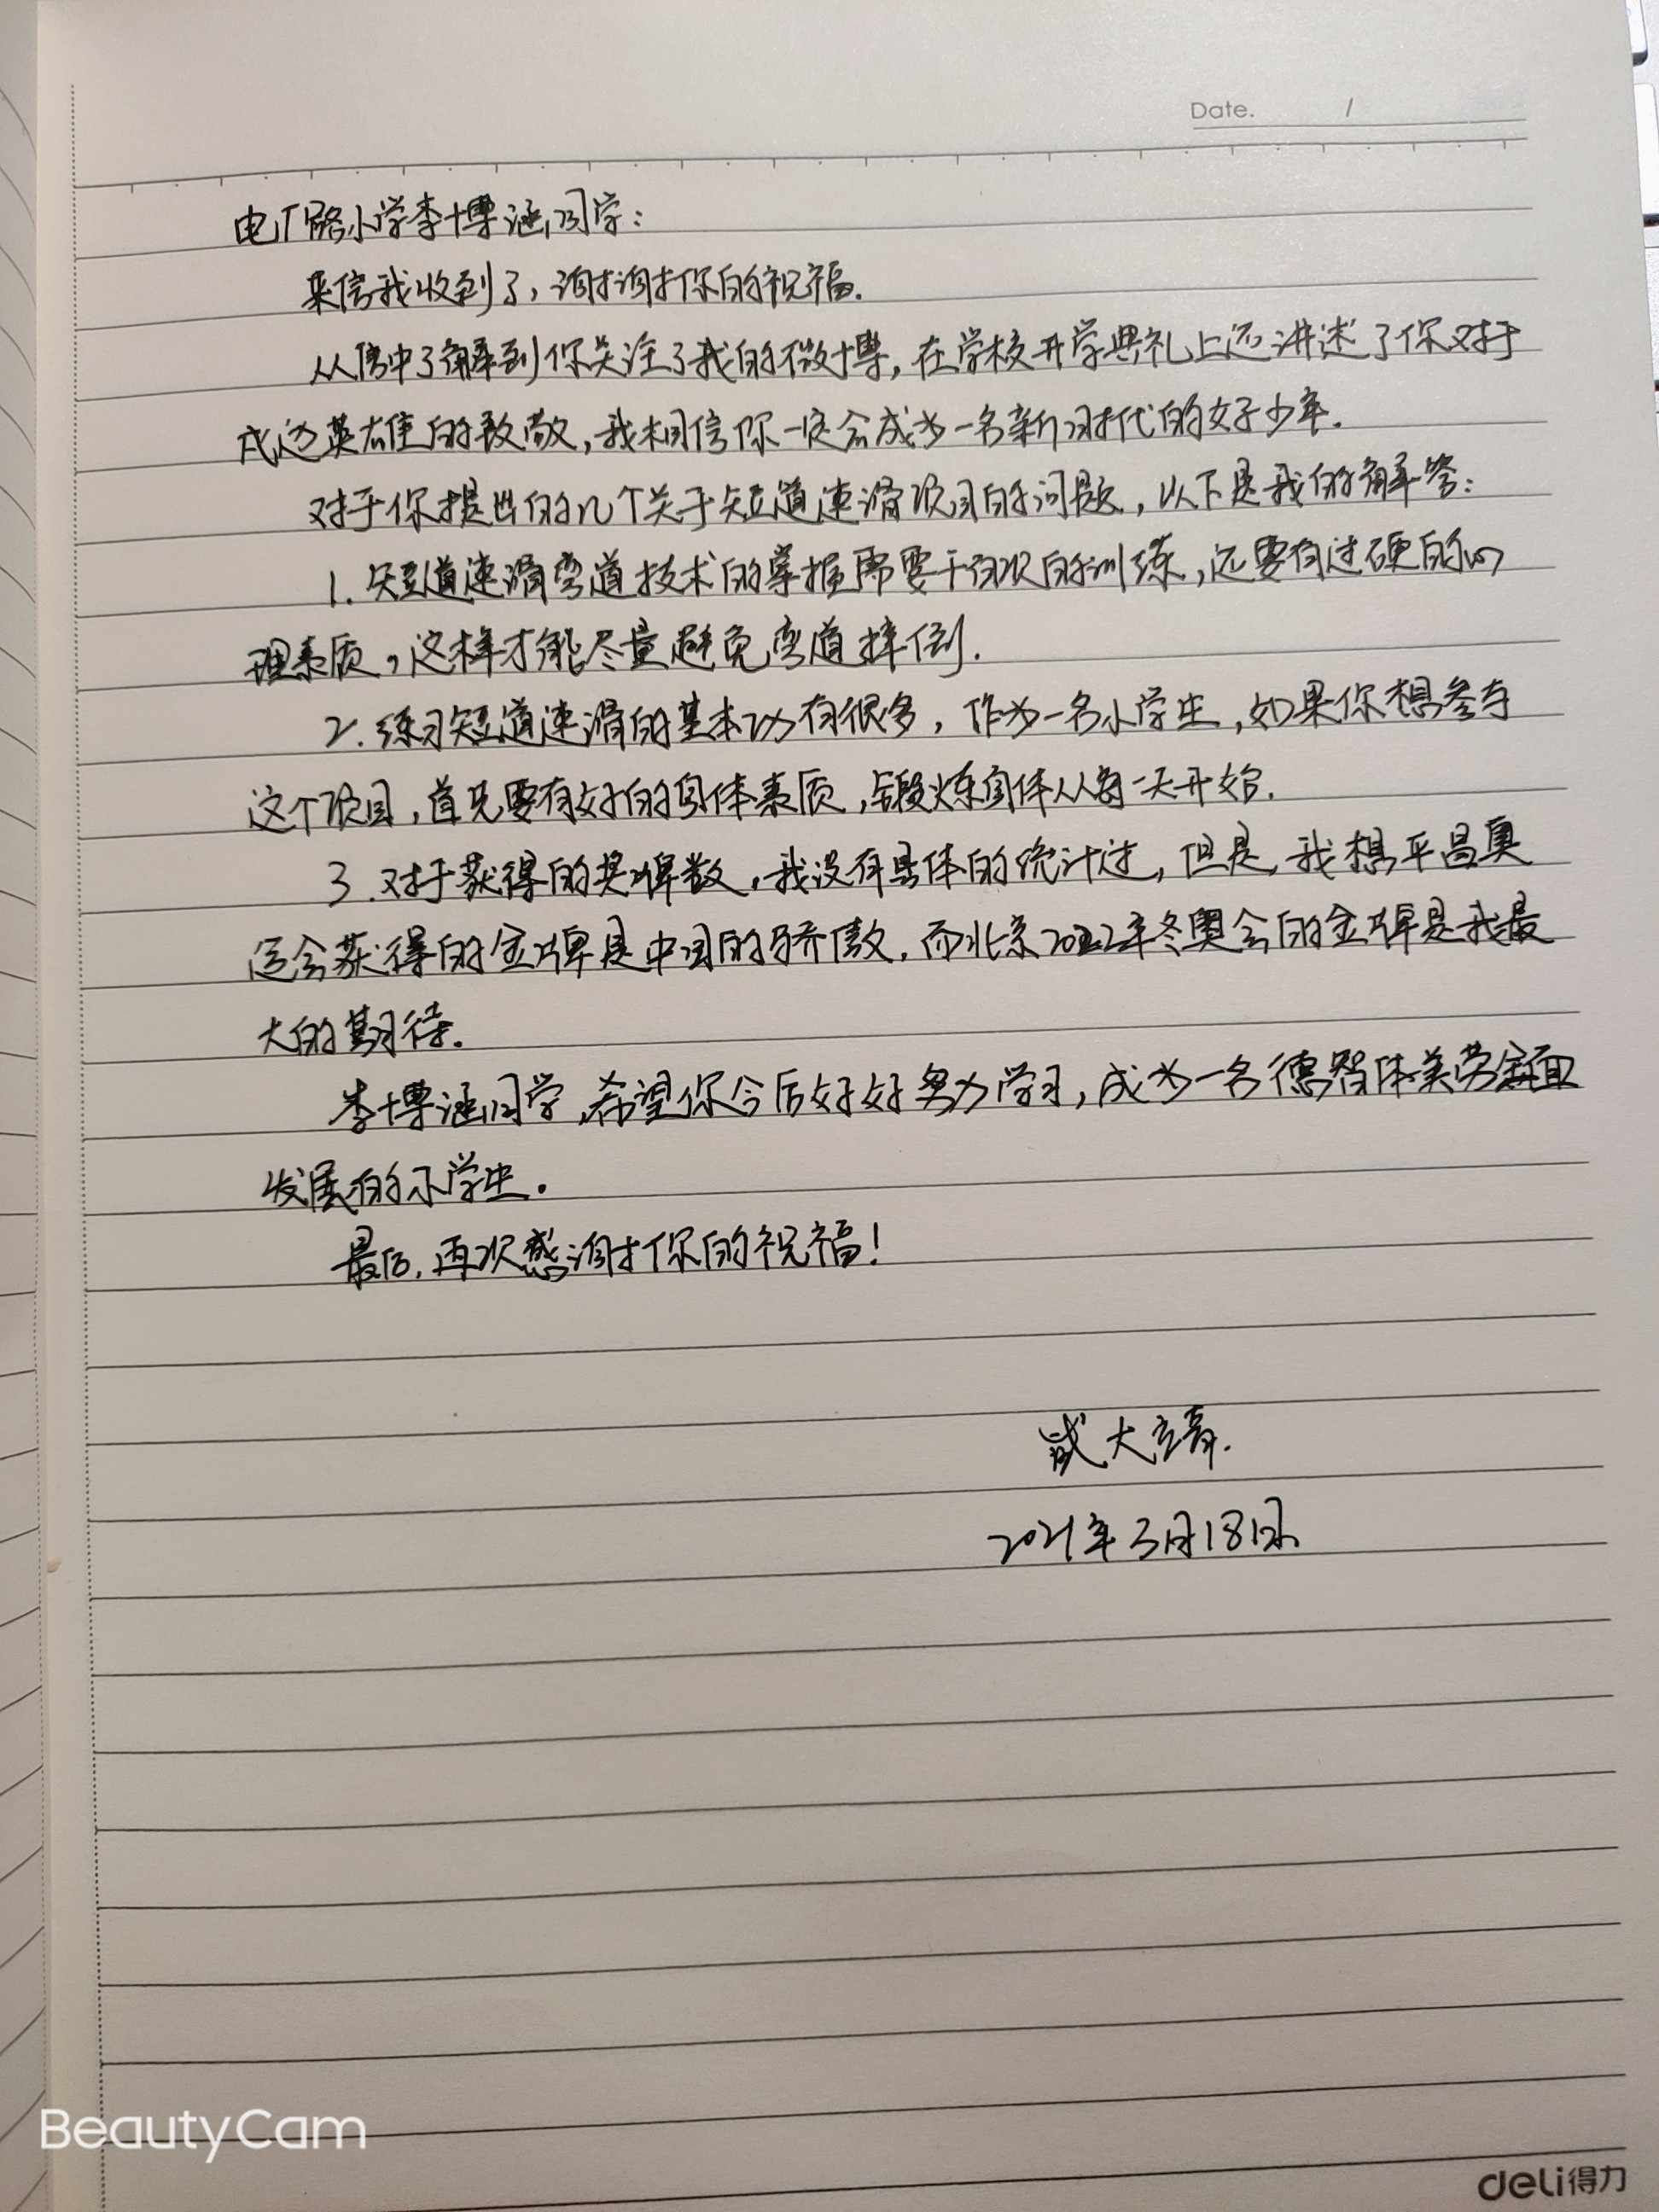 Date. /
电厂路小学李博涵同学：
来信我收到了，谢谢你的祝福.
从信中了解到你关注了我的微博，在学校开学典礼上还讲述了你对于
戍边英雄的致敬，我相信你一定会成为一名新时代的好少年.
对于你提出的几个关于短道速滑项目的问题，以下是我的解答：
1. 短道速滑弯道技术的掌握需要千百次的训练，还要有过硬的心
理素质，这样才能尽量避免弯道摔倒.
2. 练习短道速滑的基本功有很多，作为一名小学生，如果你想参与
这个项目，首先要有好的身体素质，锻炼身体从每一天开始.
3. 对于获得的奖牌数，我没有具体的统计过，但是，我想平昌奥
运会获得的金牌是中国的骄傲，而北京2022年冬奥会的金牌是我最
大的期待.
李博涵同学，希望你今后好好努力学习，成为一名德智体美劳全面
发展的小学生.
最后，再次感谢你的祝福！
武大靖.
2021年3月18日
BeautyCam
deli得力